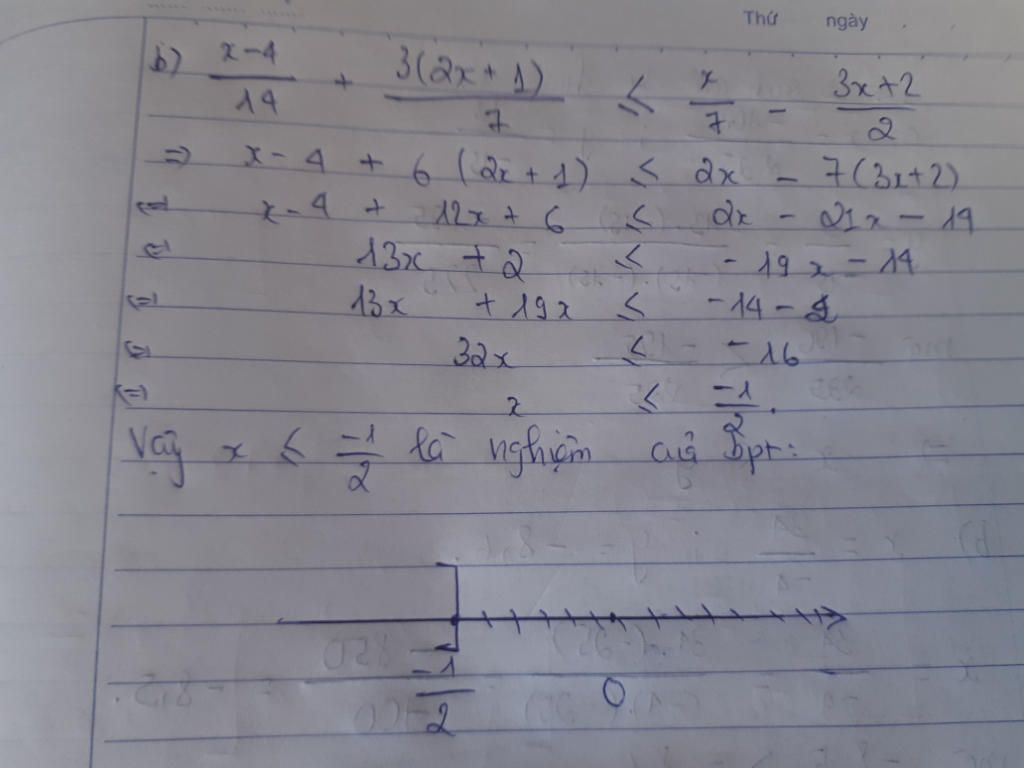 Thứ ngày
b) \frac{x-4}{14} + \frac{3(2x+1)}{7} ≤ \frac{x}{7} - \frac{3x+2}{2}
=> x-4 + 6(2x+1) ≤ 2x - 7(3x+2)
<=> x-4 + 12x + 6 ≤ 2x - 21x - 14
<=> 13x + 2 ≤ -19x - 14
<=> 13x + 19x ≤ -14 - 2
<=> 32x ≤ -16
<=> x ≤ \frac{-1}{2}.
Vậy x ≤ \frac{-1}{2} là nghiệm của bpt:
\frac{-1}{2} 0